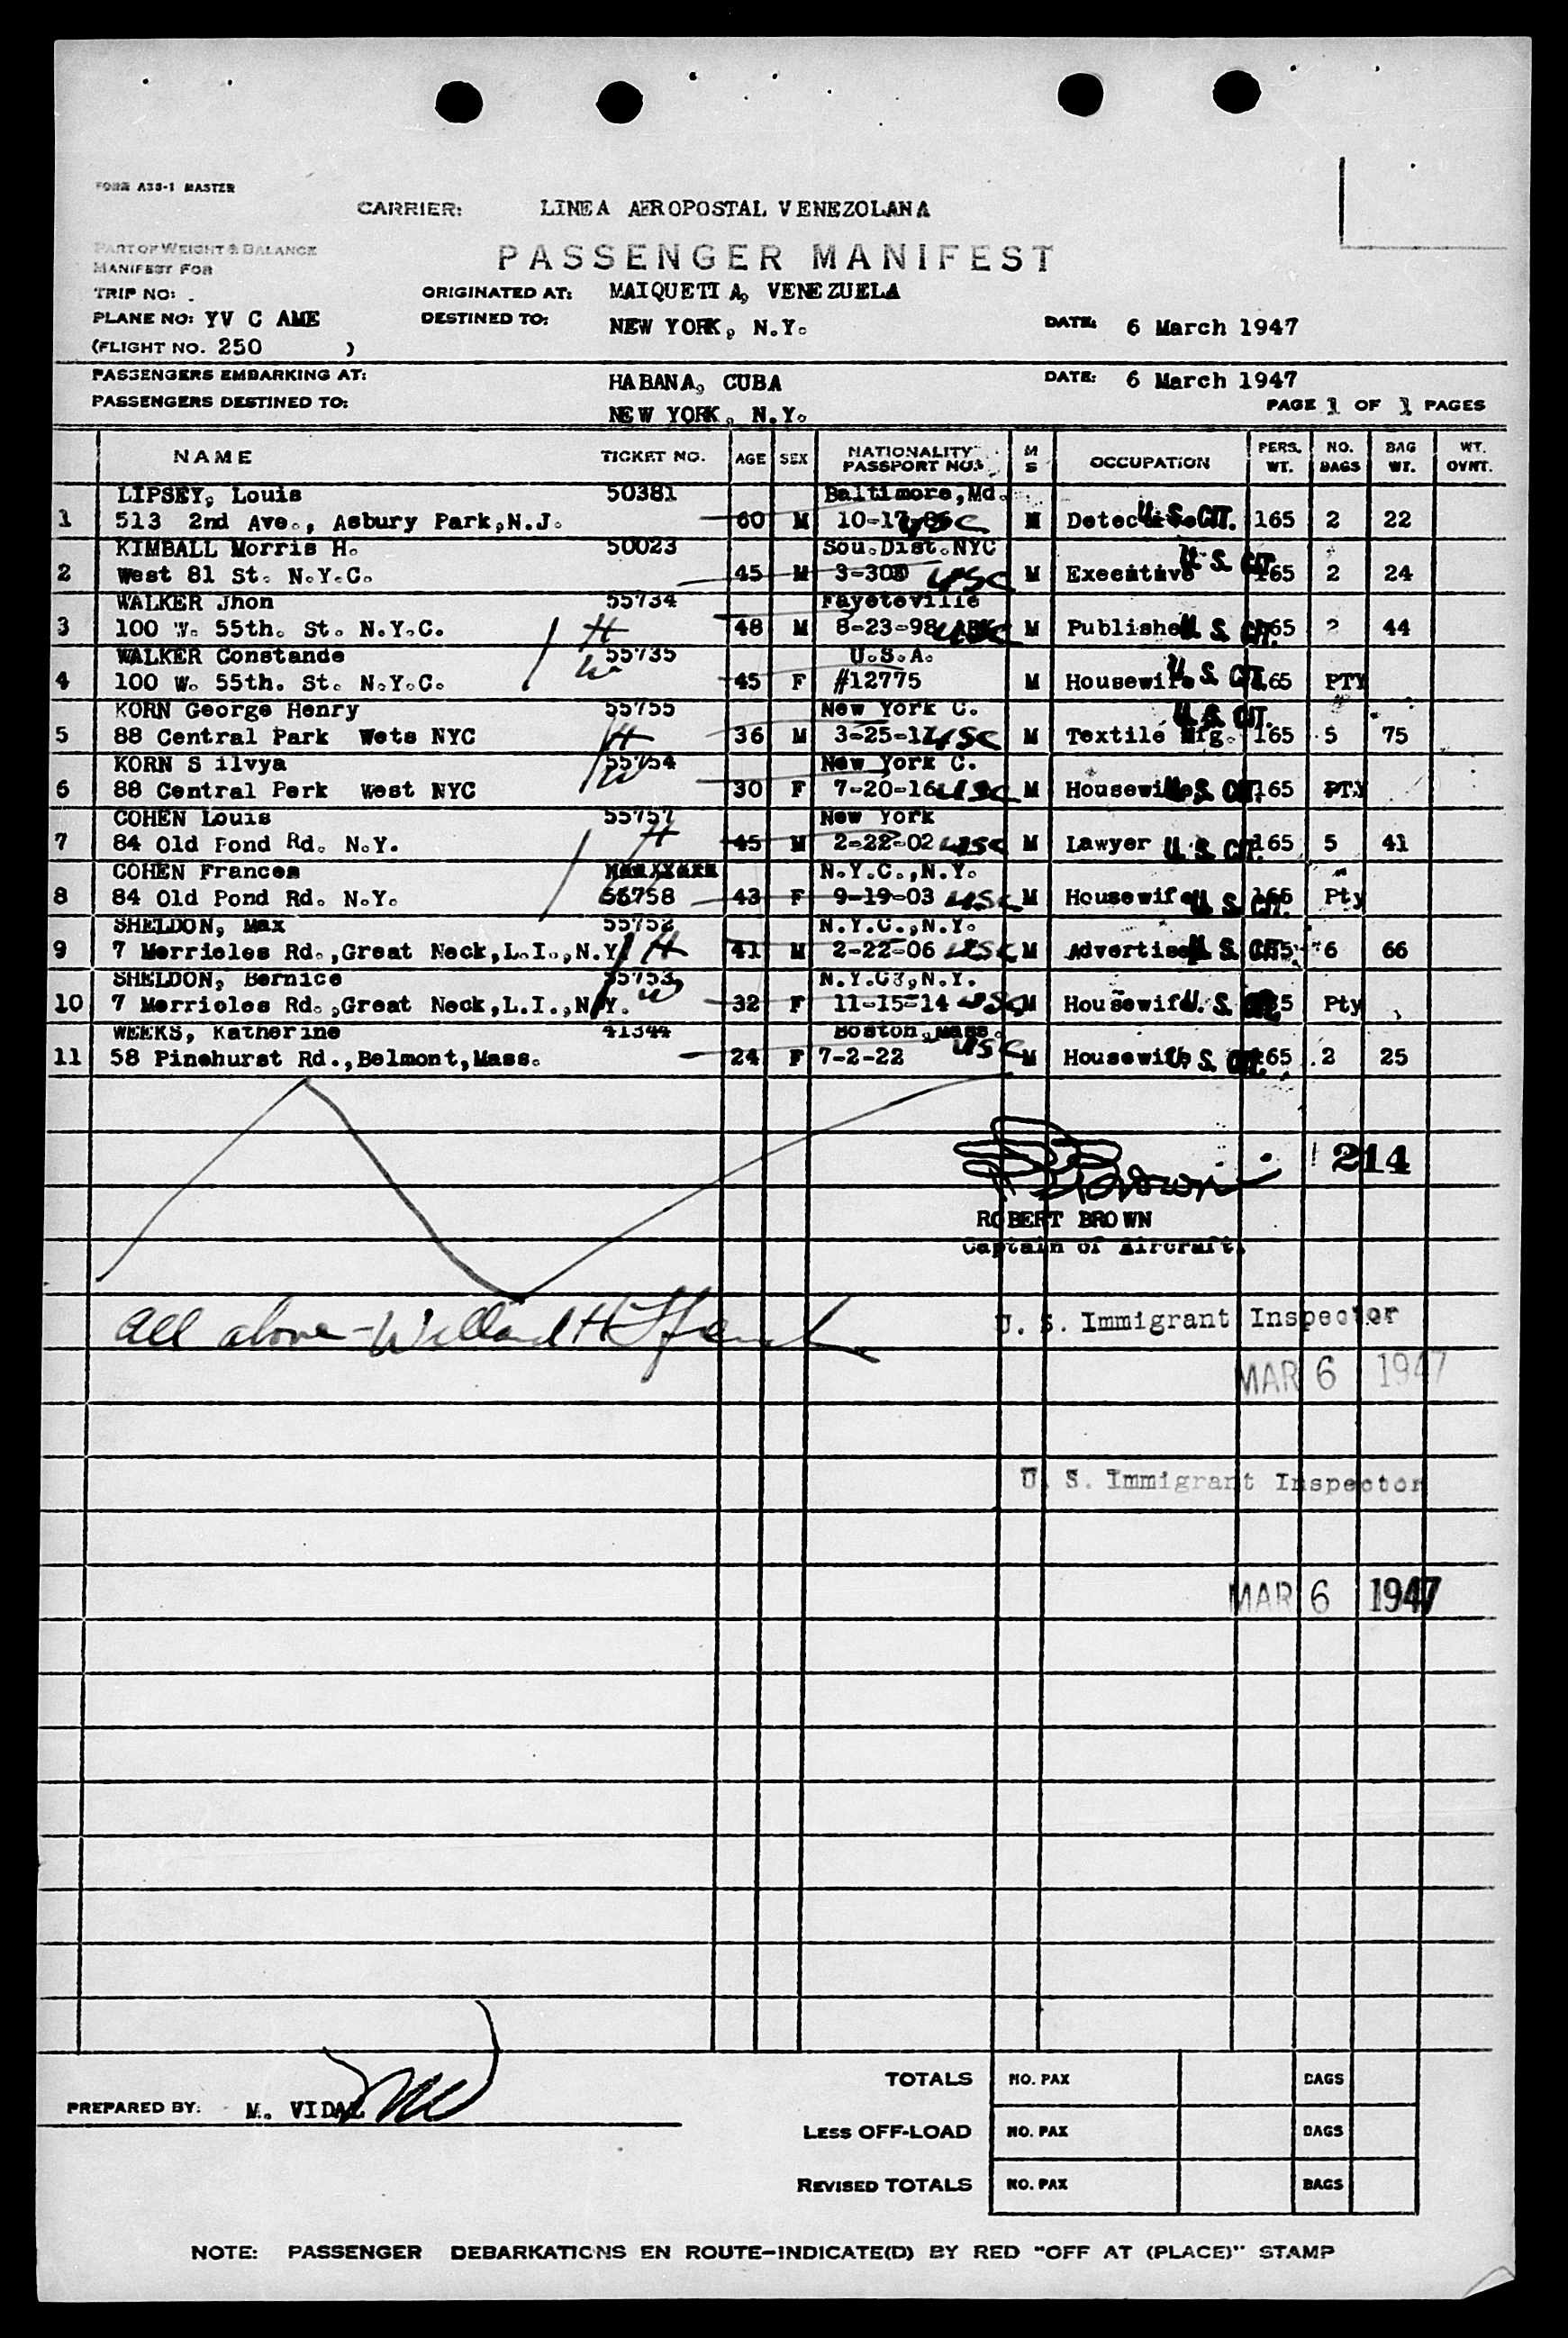 FORM A38-1 MASTER
CARRIER: LINEA AEROPOSTAL VENEZOLANA
PART OF WEIGHT & BALANCE
MANIFEST FOR
PASSENGER MANIFEST
TRIP NO:
ORIGINATED AT: MAIQUETIA, VENEZUELA
PLANE NO: YV C AME
DESTINED TO: NEW YORK, N.Y.
DATE: 6 March 1947
(FLIGHT NO. 250 )
PASSENGERS EMBARKING AT: HABANA, CUBA DATE: 6 March 1947
PASSENGERS DESTINED TO: NEW YORK, N.Y.
PAGE 1 OF 1 PAGES
NAME TICKET NO. AGE SEX NATIONALITY PASSPORT NOS. M S OCCUPATION PERS. WT. NO. BAGS BAG WT. WT. OVNT.
LIPSEY, Louis 50381 Baltimore,Md.
1 513 2nd Ave., Asbury Park,N.J. 60 M 10-17-86 USC M U.S.CIT. 165 2 22
KIMBALL Morris H. 50023 Sou.Dist.NYC
2 West 81 St. N.Y.C. 45 M USC M U. S. CIT. 165 2 24
WALKER Jhon 55734 Fayeteville
3 100 W. 55th. St. N.Y.C. H 48 M 8-23-98 USC M Publisher U. S. CIT. 165 2 44
WALKER Constande 55735 U.S.A.
4 100 W. 55th. St. N.Y.C. W 45 F #12775 M Housewife U. S. CIT. 165 PTY
KORN George Henry 55755 New York C.
5 88 Central Park Wets NYC H 36 M 3-25-11 USC M Textile Mfg. U. S. CIT. 165 5 75
KORN S ilvya 55754 New York C.
6 88 Central Perk West NYC W 30 F 7-20-16 USC M Housewife U. S. CIT. 165 PTY
COHEN Louis 55757 New York
7 84 Old Pond Rd. N.Y. H 45 M 2-22-02 USC M Lawyer U. S. CIT. 165 5 41
COHEN Frances N.Y.C.,N.Y.
8 84 Old Pond Rd. N.Y. 55758 43 F 9-19-03 USC M Housewife U. S. CIT. 165 Pty
SHELDON, Max 55752 N.Y.C.,N.Y.
9 7 Merrieles Rd.,Great Neck,L.I.,N.Y. H 41 M 2-22-06 USC M Advertiser U. S. CIT. 165 6 66
SHELDON, Bernice 55753 N.Y.C.,N.Y.
10 7 Merrieles Rd.,Great Neck,L.I.,N.Y. W 32 F 11-15-14 USC M Housewife U. S. CIT. 165 Pty
WEEKS, Katherine 41344 Boston,Mass.
11 58 Pinehurst Rd.,Belmont,Mass. 24 F 7-2-22 USC M Housewife U. S. CIT. 165 2 25
214
ROBERT BROWN
Captain of Aircraft.
All above - Willard H
U. S. Immigrant Inspector
MAR 6 1947
U. S. Immigrant Inspector
MAR 6 1947
PREPARED BY: M. VIDAL
TOTALS NO. PAX BAGS
LESS OFF-LOAD NO. PAX BAGS
REVISED TOTALS NO. PAX BAGS
NOTE: PASSENGER DEBARKATIONS EN ROUTE-INDICATE(D) BY RED "OFF AT (PLACE)" STAMP